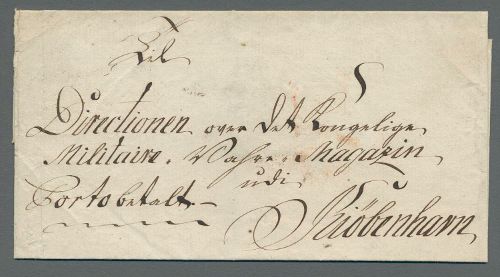 Til
Directionen over Det Kongelige
Militaire Vahre Magazin
udi
Portobetalt
Kiøbenhavn